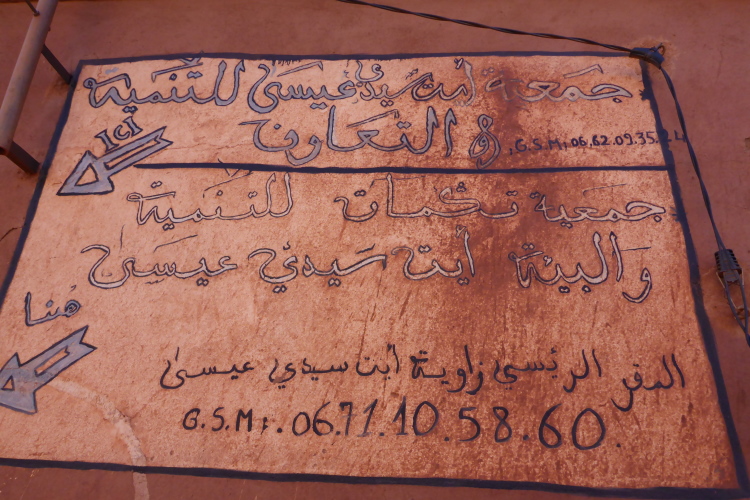 جمعية أيت سيدي عيسى للتنمية
و التعاون G.S.M: 06.62.09.35.21
ICI
جمعية تكمات للتنمية
والبيئة أيت سيدي عيسى
هنا
المقر الرئسي زاوية أيت سيدي عيسى
G.S.M: .06.71.10.58.60.